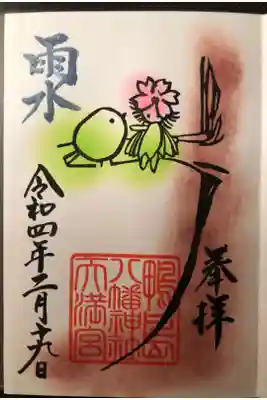 奉拝
八幡神社
天満宮
雨水
令和四年二月十九日